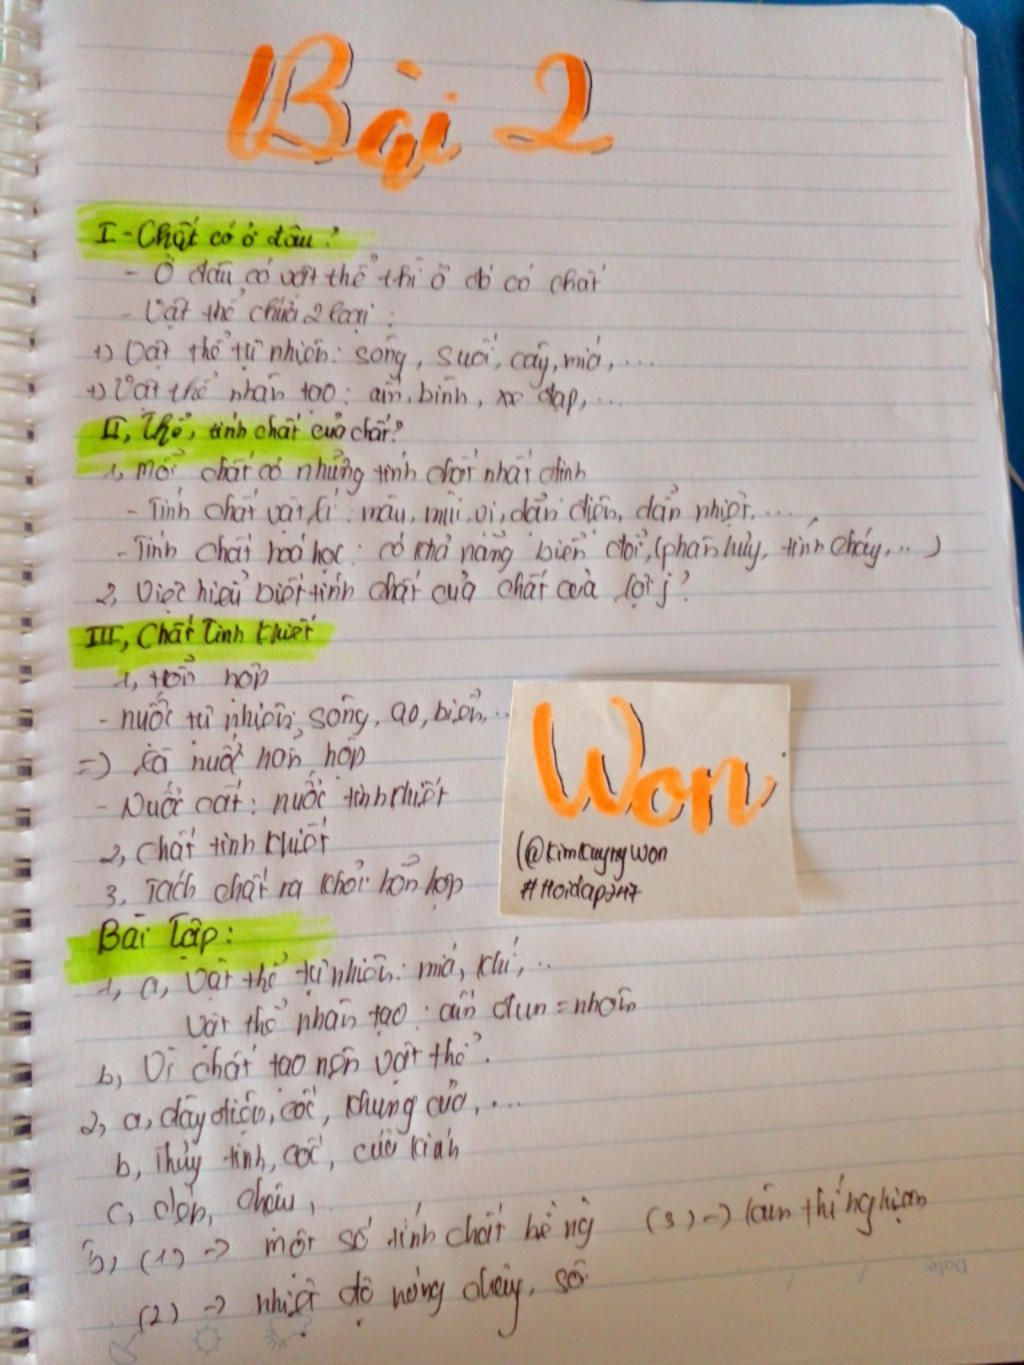 Bài 2
I - Chất có ở đâu?
- Ở đâu có vật thể thì ở đó có chất
- Vật thể chia 2 loại:
+) Vật thể tự nhiên: sông, suối, cây, mía, ...
+) Vật thể nhân tạo: ấm, bình, xe đạp, ...
II, Thể, tính chất của chất?
1, mỗi chất có những tính chất nhất định
- Tính chất vật lí: màu, mùi, vị, dẫn điện, dẫn nhiệt, ...
- Tính chất hoá học: có khả năng biến đổi, (phân hủy, tính cháy, ...)
2, Việc hiểu biết tính chất của chất có lợi j?
III, Chất tinh khiết
1, Hỗn hợp
- nước tự nhiên: sông, ao, biển, ...
=) Là nước hỗn hợp
- Nước cất: nước tinh khiết
2, chất tinh khiết
3, Tách chất ra khỏi hỗn hợp
Won
(@KimKuyngWon
#Hoidap247
Bài Tập:
1, a, Vật thể tự nhiên: mía, khí, ...
Vật thể nhân tạo: ấm đun = nhôm
b, Vì chất tạo nên vật thể.
2, a, dây điện, cốc, khung cửa, ...
b, Thủy tinh, cốc, cửa kính
c,
3, (1) -> một số tính chất bề ng (3) -> làm thí nghiệm
(2) -> nhiệt độ nóng chảy, sôi
Date: